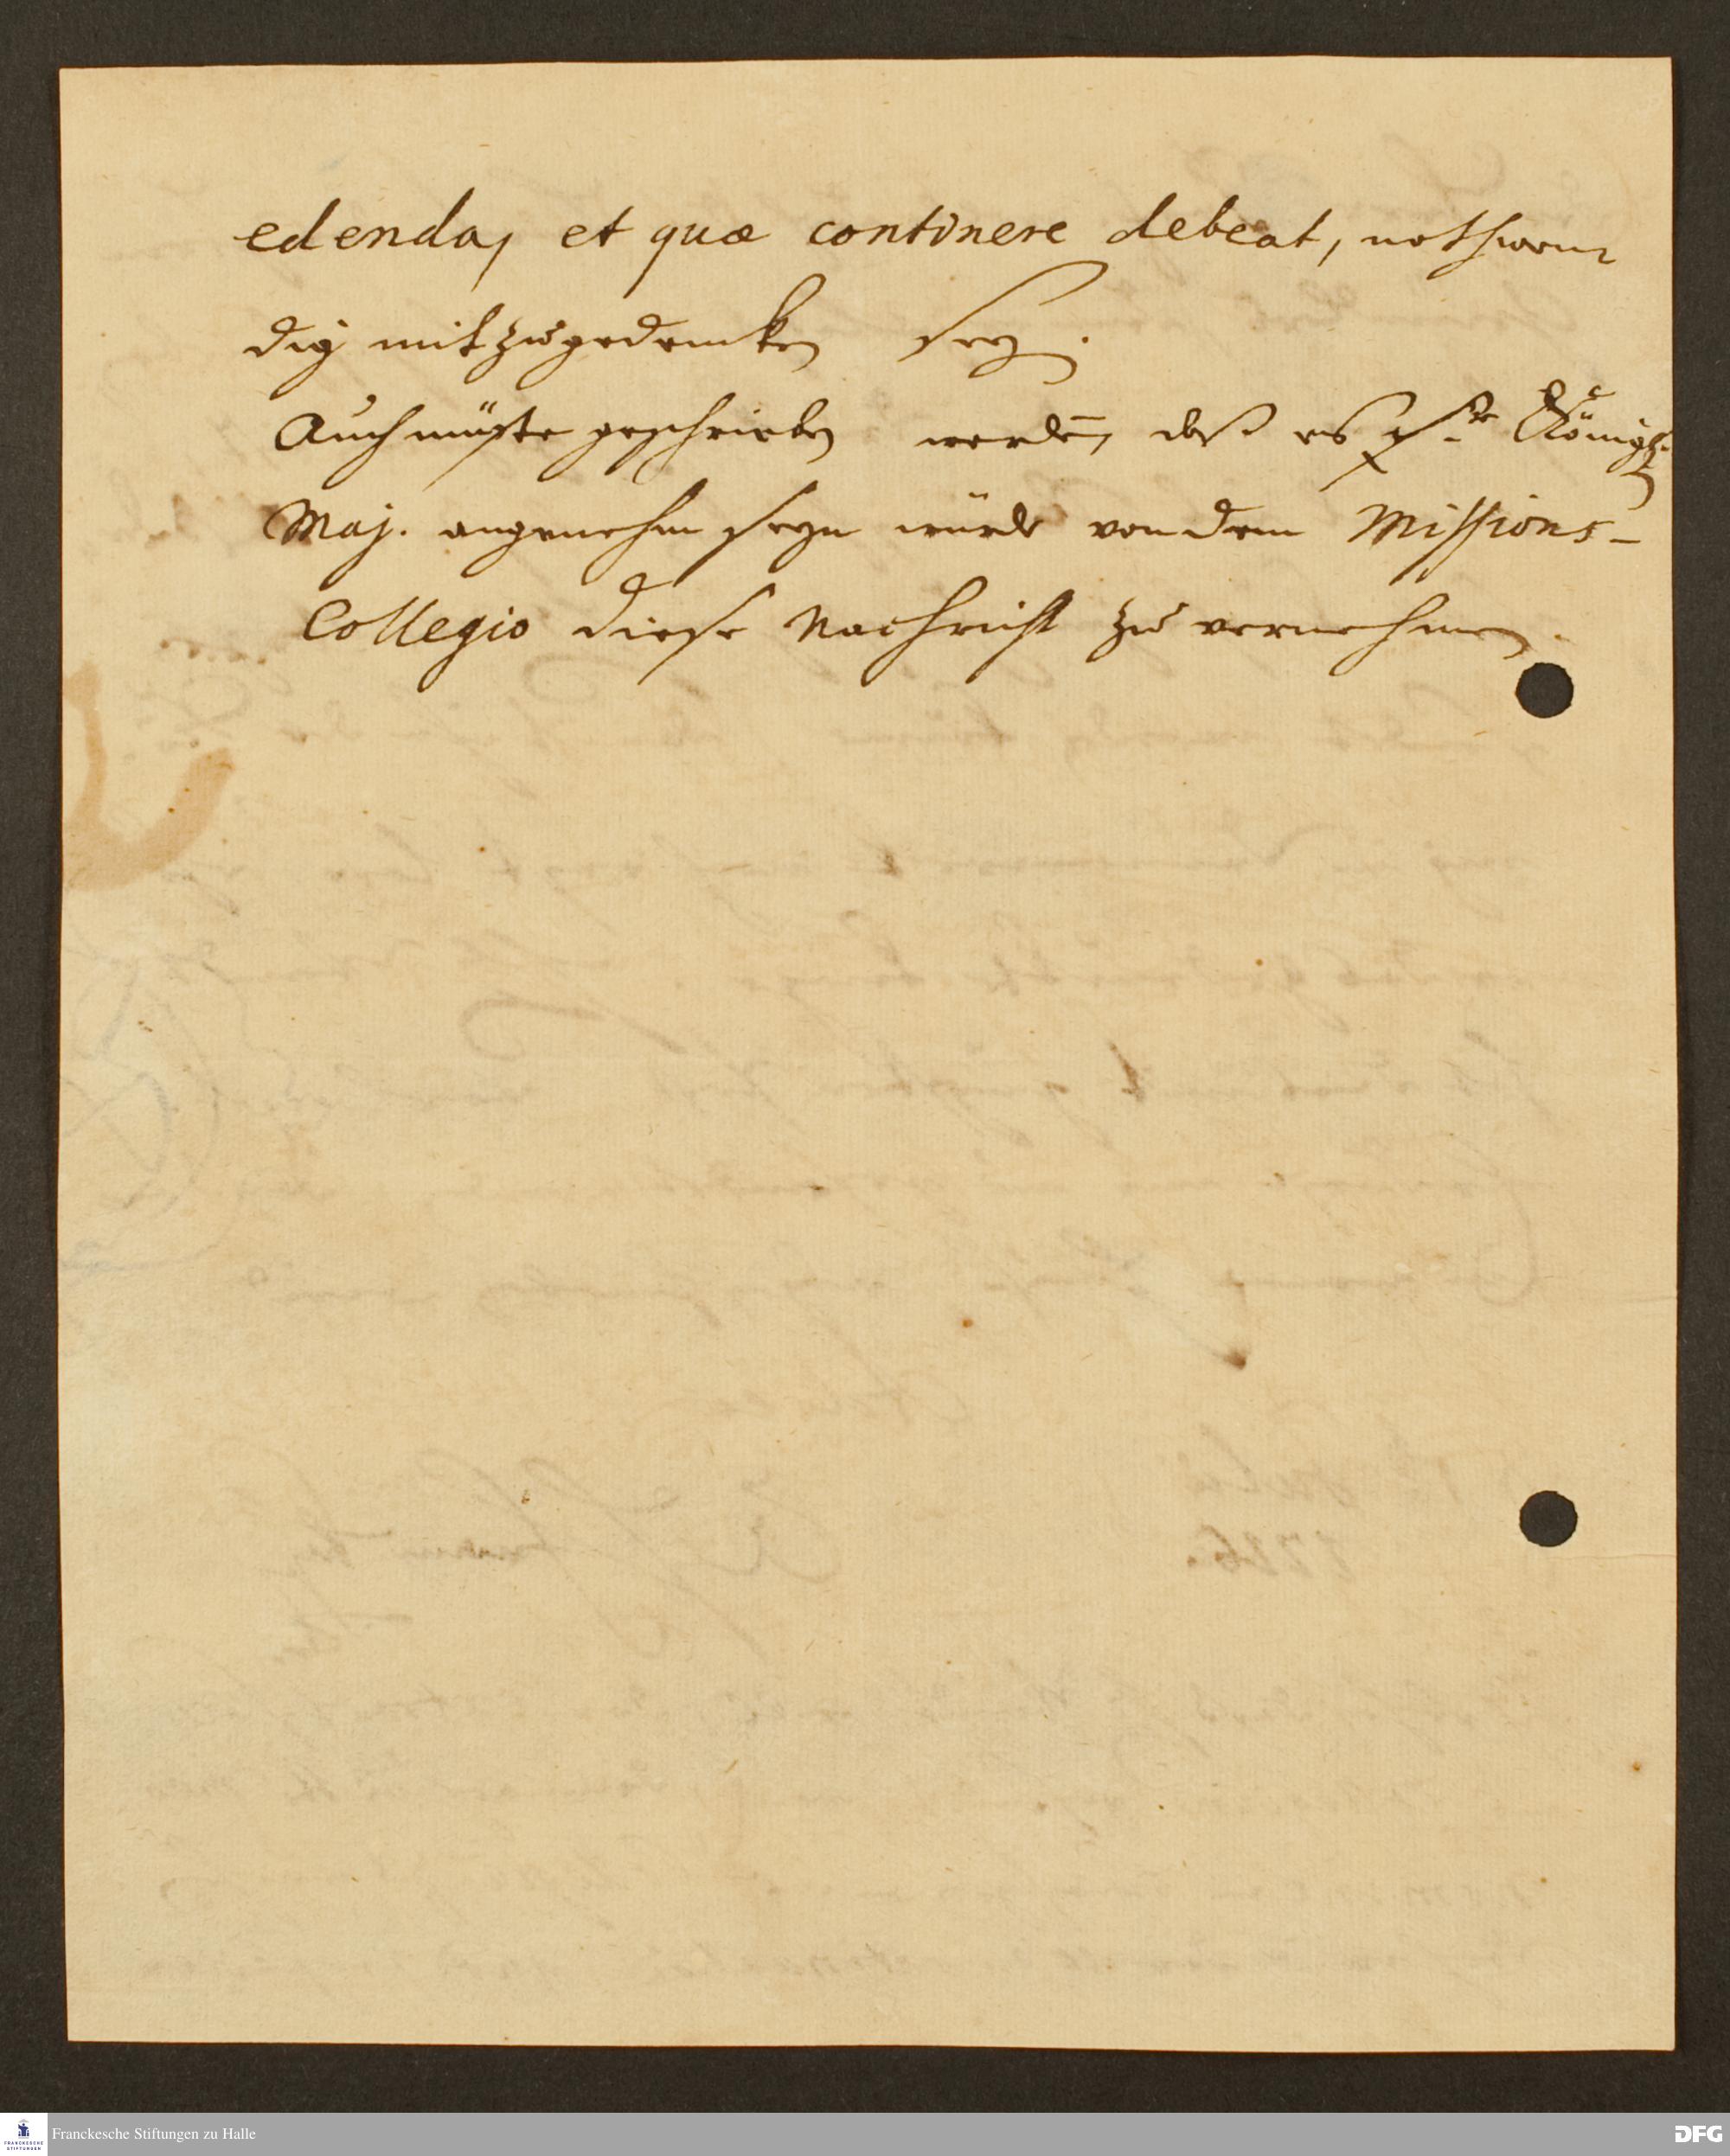 edenda, et quæ continere debeat, nothwen
dig mit zu gedencken sey.
Auch müste geschrieben werden, daß es Sr. Königl.
Maj. angenehm seyn würde von dem Missions-
Collegio diese Nachricht zu vernehmen.
FRANCKESCHE
STIFTUNGEN
Franckesche Stiftungen zu Halle
DFG